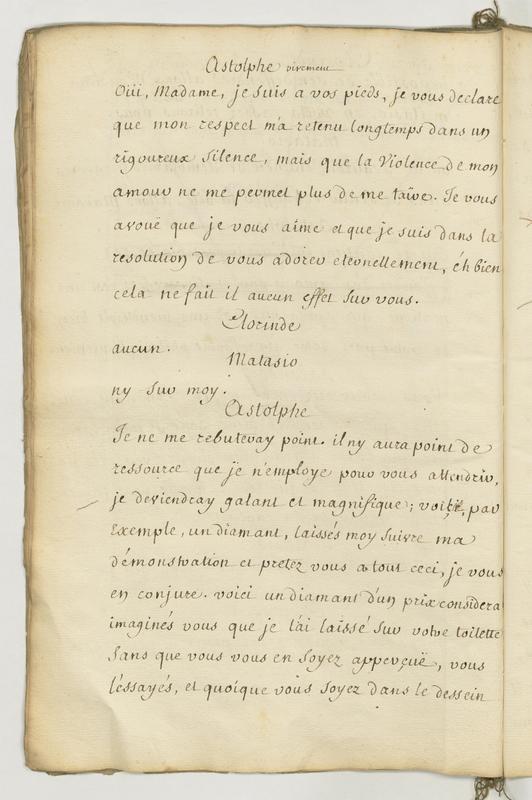 Astolphe vivement
Oüi, Madame, je suis a vos pieds, je vous declare
que mon respect m'a retenu longtemps dans un
rigoureux silence, mais que la violence de mon
amour ne me permet plus de me taire. Je vous
avoüe que je vous aime et que je suis dans la
resolution de vous adorer eternellement, éh bien
cela ne fait il aucun effet sur vous.
Clorinde
aucun.
Matasio
ny sur moy.
Astolphe
Je ne me rebuteray point. il ny aura point de
ressource que je n'employe pour vous attendrir,
je deviendray galant et magnifique; voicy, par
Exemple, un diamant, laissés moy suivre ma
démonstration et pretez vous a tout ceci, je vous
en conjure. voici un diamant d'un prix considera
imaginés vous que je l'ai laissé sur votre toilette
sans que vous vous en soyez apperçuë, vous
l'éssayés, et quoique vous soyez dans le dessein